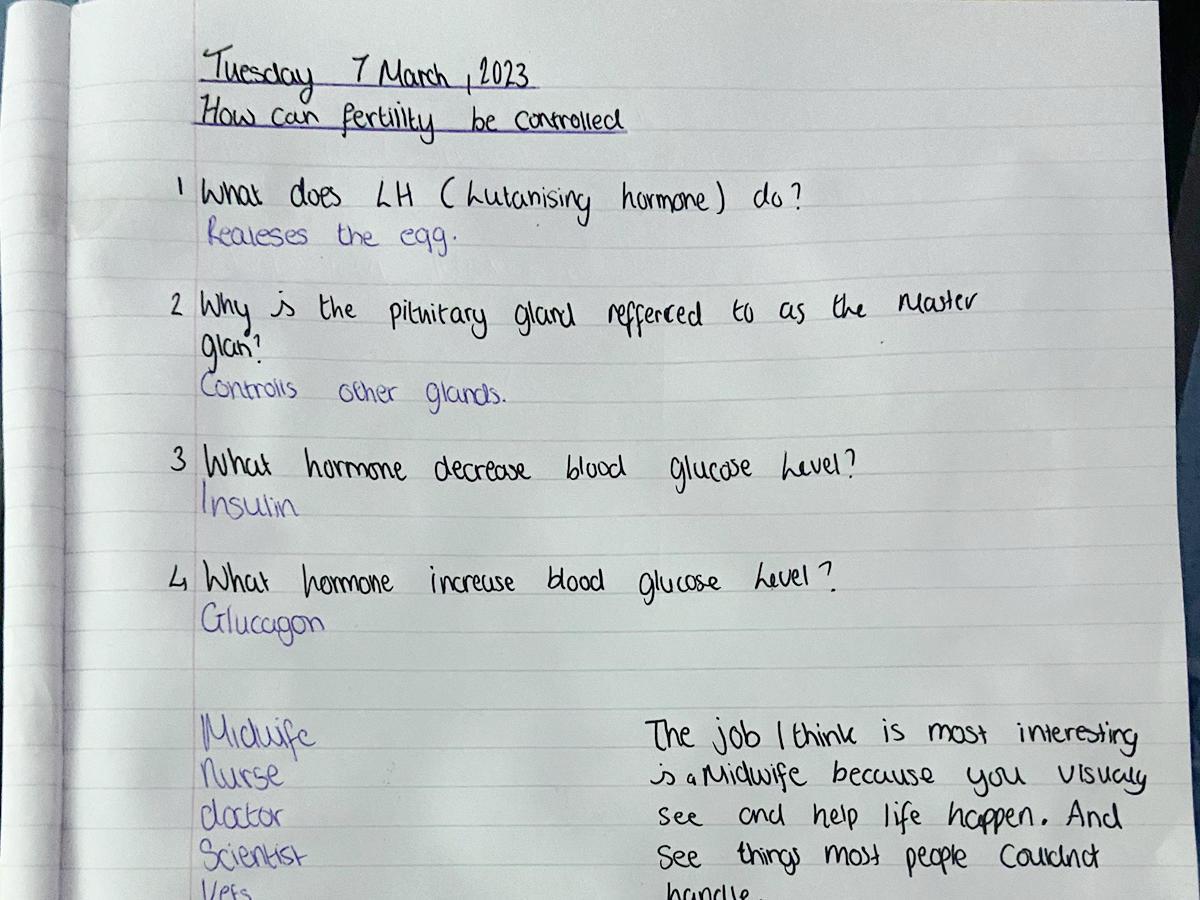 Tuesday 7 March, 2023
How can fertility be controlled
1 What does LH (Lutanising hormone) do?
Realeses the egg.
2 Why is the pituitary gland refferced to as the Master
glan?
Controlls other glands.
3 What hormone decrease blood glucose Level?
Insulin
4 What hormone increase blood glucose Level?
Glucagon
Midwife
Nurse
doctor
Scientist
Vets
The job I think is most interesting
is a Midwife because you visualy
see and help life happen. And
see things most people Couldnt
handle.